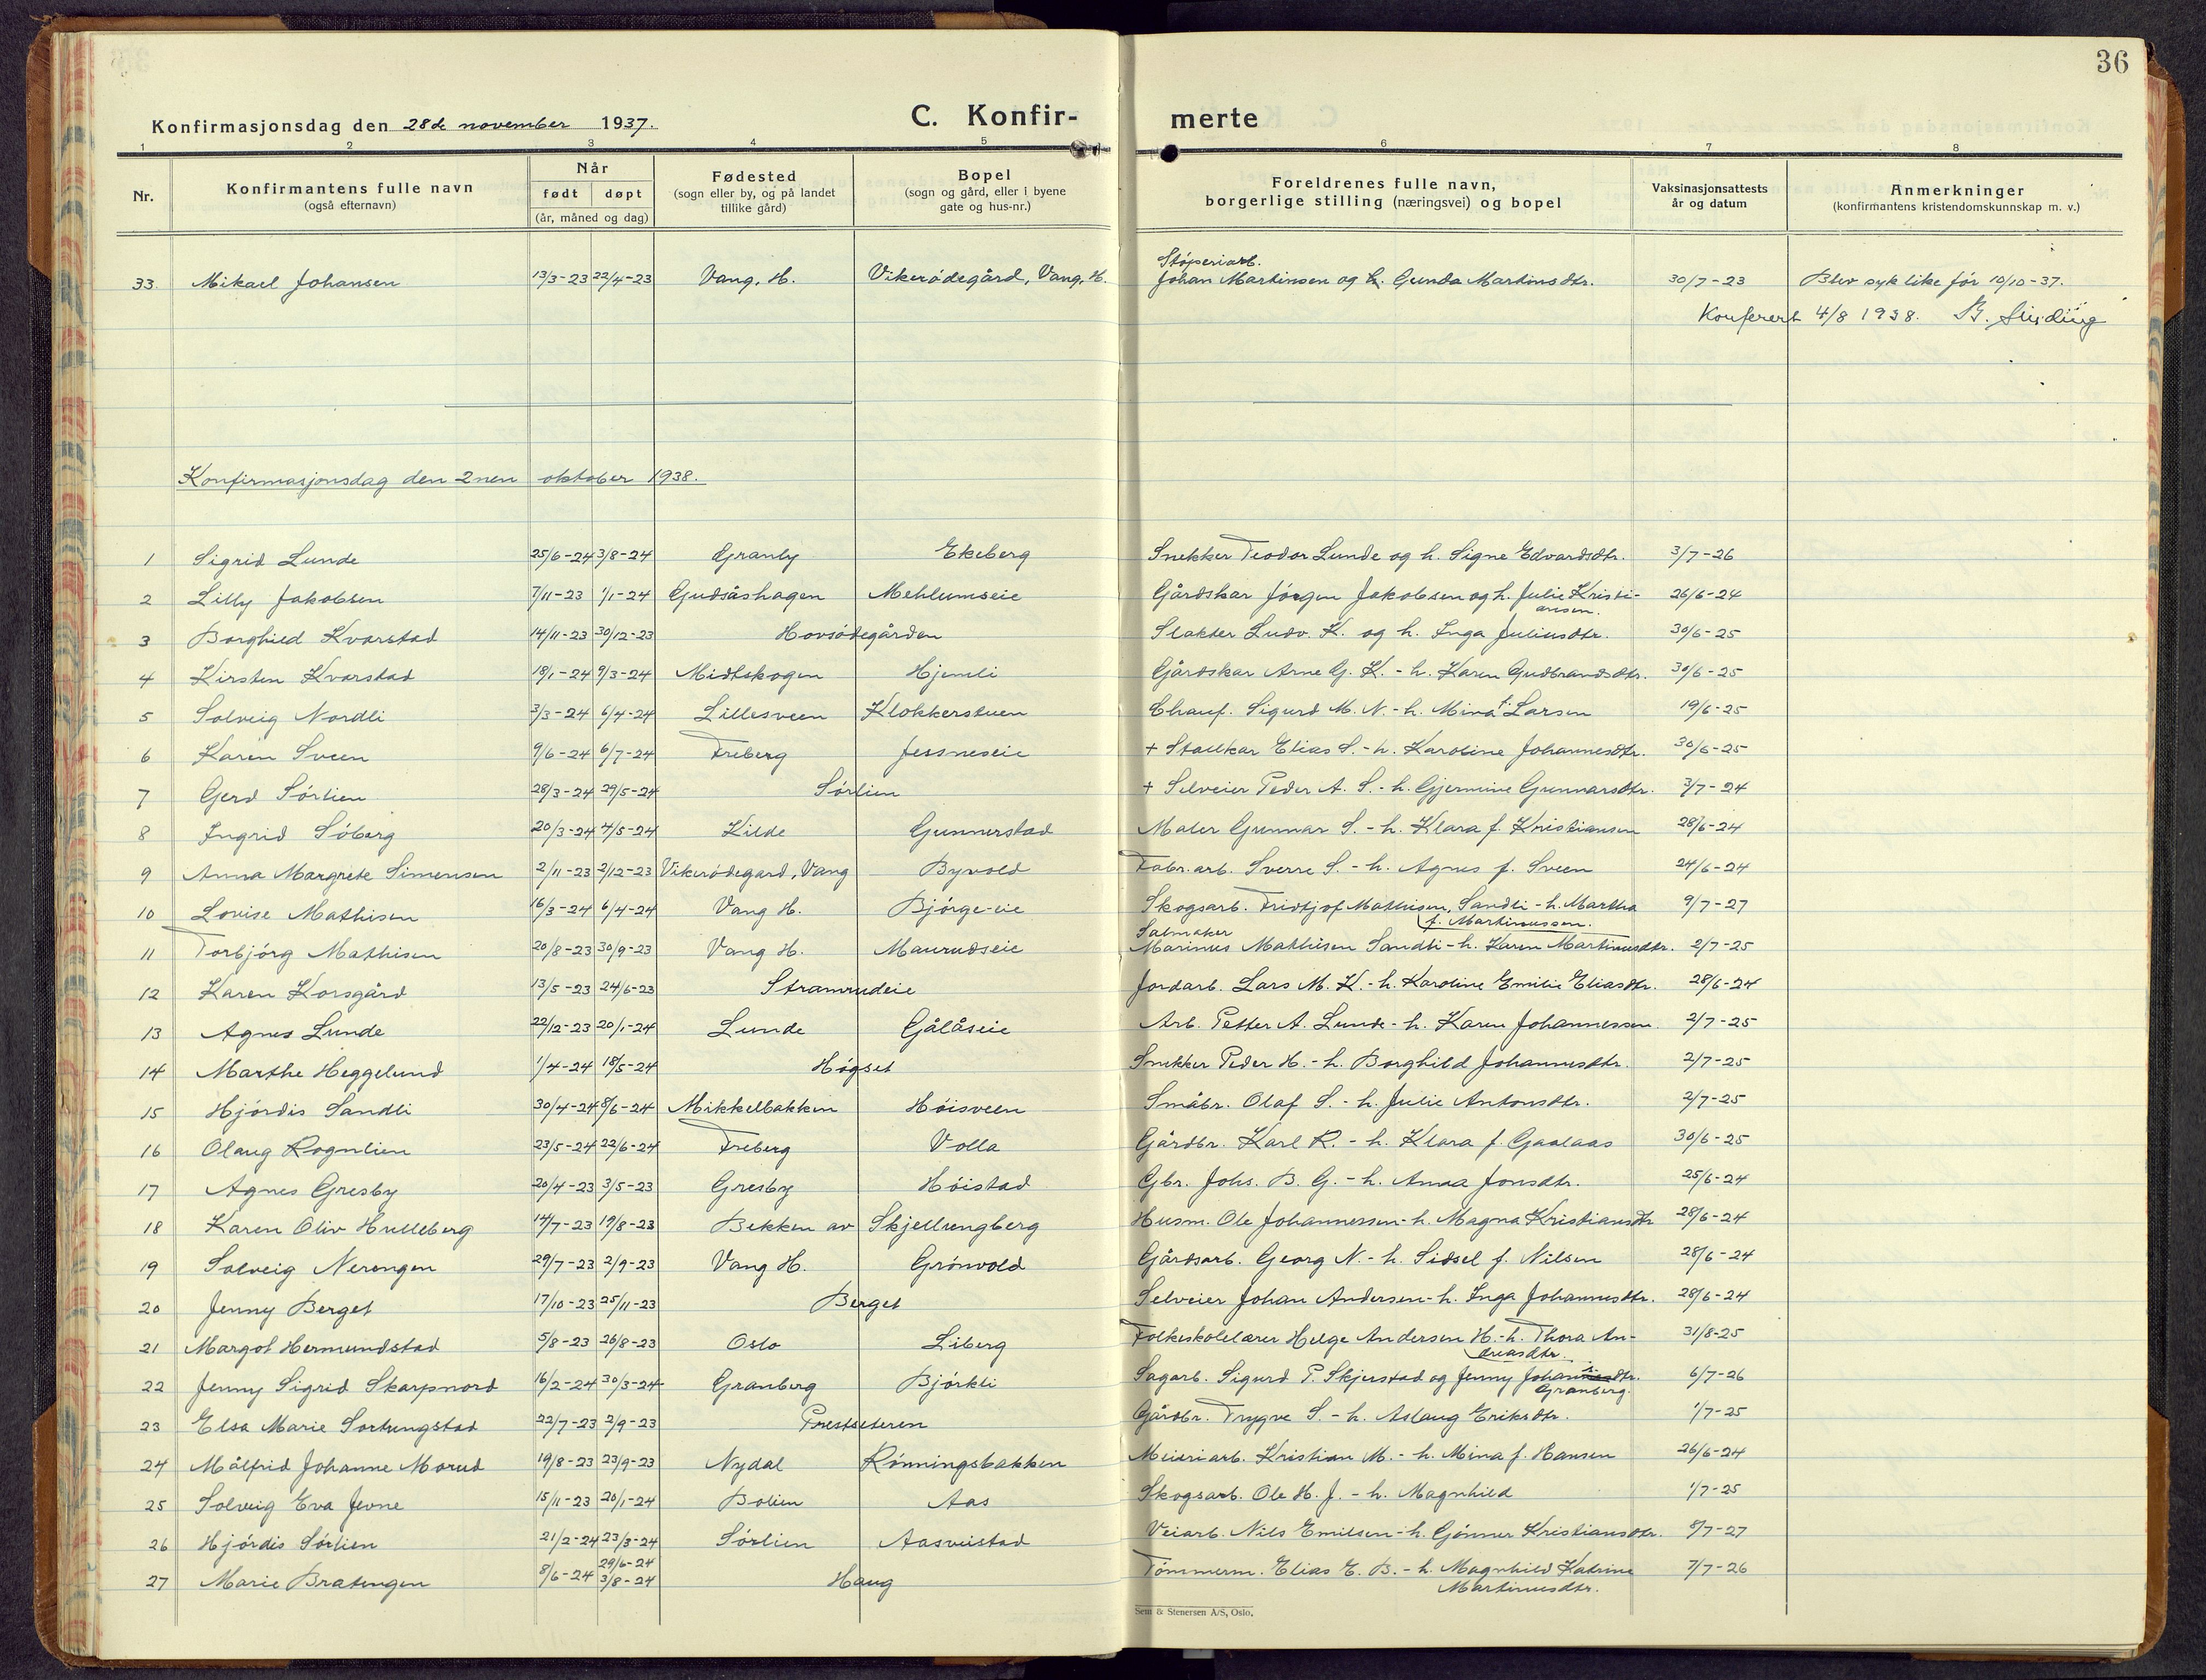 36
Konfirmasjonsdag den 28de november 1937.
C. Konfir-
merte
1 2 3 4 5 6 7 8
Nr.
Konfirmantens fulle navn
(også efternavn)
Når
født døpt
(år, måned og dag)
Fødested
(sogn eller by, og på landet
tillike gård)
Bopel
(sogn og gård, eller i byene
gate og hus-nr.)
Foreldrenes fulle navn,
borgerlige stilling (næringsvei) og bopel
Vaksinasjonsattests
år og datum
Anmerkninger
(konfirmantens kristendomskunnskap m. v.)
Støperiarb.
33. Mikael Johansen 13/3-23 22/4-23 Vang, H. Vikerødegård, Vang, H. Johan Martinsen og h. Gunda Martinsdtr. 30/7-23 Blev syk like før 10/10-37.
Konferert 4/8 1938.
Konfirmasjonsdag den 2nen oktober 1938.
1 Sigrid Lunde 25/6-24 3/8-24 Granly Ekeberg Snekker Teodor Lunde og h. Signe Edvardsdtr. 3/7-26
2 Lilly Jakobsen 7/11-23 1/1-24 Gudsåshagen Mehlumseie Gårdskar Jørgen Jakobsen og h. Julie Kristi-
ansen. 26/6-24
3 Borghild Kvarstad 14/11-23 30/12-23 Hovsødegården Slakter Ludv. K. og h. Inga Juliusdtr. 30/6-25
4 Kirsten Kvarstad 18/1-24 9/3-24 Midtskogen Hjemli Gårdskar Arne G. K. - h. Karen Gudbrandsdtr. 30/6-25
5 Solveig Nordli 3/3-24 6/4-24 Lillesveen Klokkerstuen Chauf. Sigurd M. N. - h. Mina f. Larsen 19/6-25
6 Karen Sveen 9/6-24 6/7-24 Freberg Jessneseie + Stallkar Elias S. - h. Karoline Johannesdtr. 30/6-25
7 Gerd Sørlien 28/3-24 29/5-24 Sørlien + Selveier Peder A. S. - h. Gjermine Gunnarsdtr. 3/7-24
8 Ingrid Søberg 20/3-24 4/5-24 Kilde Gunnerstad Maler Gunnar S. - h. Klara f. Kristiansen 28/6-24
9 Anna Margrete Simensen 2/11-23 2/12-23 Vikerødegard, Vang Byvold Fabr. arb. Sverre S. - h. Agnes f. Sveen 24/6-24
10 Lovise Mathisen 16/3-24 6/4-24 Vang H. Bjørge-eie Skogsarb. Fridtjof Mathisen, Sandli - h. Martha
f. Martinussen. 9/7-27
Salmaker
11 Torbjørg Mathisen 20/8-23 30/9-23 Vang H. Maurudseie Marinus Mathisen Sandli - h. Karen Martinusdtr. 2/7-25
12 Karen Korsgård 13/5-23 24/6-23 Stramrudeie Jordarb. Lars M. K. - h. Karoline Emilie Eliasdtr. 28/6-24
13 Agnes Lunde 22/12-23 20/1-24 Lunde Gålåseie Arb. Petter A. Lunde - h. Karen Johannessen. 2/7-25
14 Marthe Heggelund 1/4-24 18/5-24 Høgset Snekker Peder H. - h. Borghild Johannesdtr. 2/7-25
15 Hjørdis Sandli 30/4-24 8/6-24 Mikkelbakken Høisveen Småbr. Olaf S. - h. Julie Antonsdtr. 2/7-25
16 Olaug Rognlien 23/5-24 22/6-24 Freberg Volla Gårdbr. Karl R. - h. Klara f. Gaalaas 30/6-25
17 Agnes Gresby 20/4-23 3/5-23 Gresby Høistad Gbr. Johs. B. G. - h. Anna Jonsdtr. 25/6-24
18 Karen Oliv Hulleberg 14/7-23 19/8-23 Bekken av Skjellungberg Husm. Ole Johannessen - h. Magna Kristiansdtr 28/6-24
19 Solveig Nerengen 29/7-23 2/9-23 Vang H. Grønvold Gårdsarb. Georg N. - h. Sidsel f. Nilsen 28/6-24
20 Jenny Berget 17/10-23 25/11-23 Berget Selveier Johan Andersen - h. Inga Johannesdtr. 28/6-24
21 Margot Hermundstad 5/8-23 26/8-23 Oslo Liberg Folkeskolelærer Helge Andersen H. - h. Thora An-
dreasdtr. 31/8-25
22 Jenny Sigrid Skarpsnord 16/2-24 30/3-24 Granberg Bjørkli Sagarb. Sigurd P. Skjerstad og Jenny
Granberg. 6/7-26
23 Elsa Marie Sortungstad 22/7-23 2/9-23 Prestseteren Gårdbr. Trygve S. - h. Aslaug Eriksdtr. 1/7-25
24 Målfrid Johanne Morud 19/8-23 23/9-23 Nydal Rønningsbakken Meieriarb. Kristian M. - h. Mina f. Hansen 26/6-24
25 Solveig Eva Jevne 15/11-23 20/1-24 Bolien Aas Skogsarb. Ole H. J. - h. Magnhild 1/7-25
26 Hjørdis Sørlien 21/2-24 23/3-24 Sørlien Aasveistad Veiarb. Nils Emilsen - h. Gønner Kristiansdtr. 8/7-27
27 Marie Bratengen 8/6-24 29/6-24
3/8-24 Haug Tømmerm. Elias E. B. - h. Magnhild Katrine
Martinusdtr. 7/7-26
Sem & Stenersen A/S, Oslo.